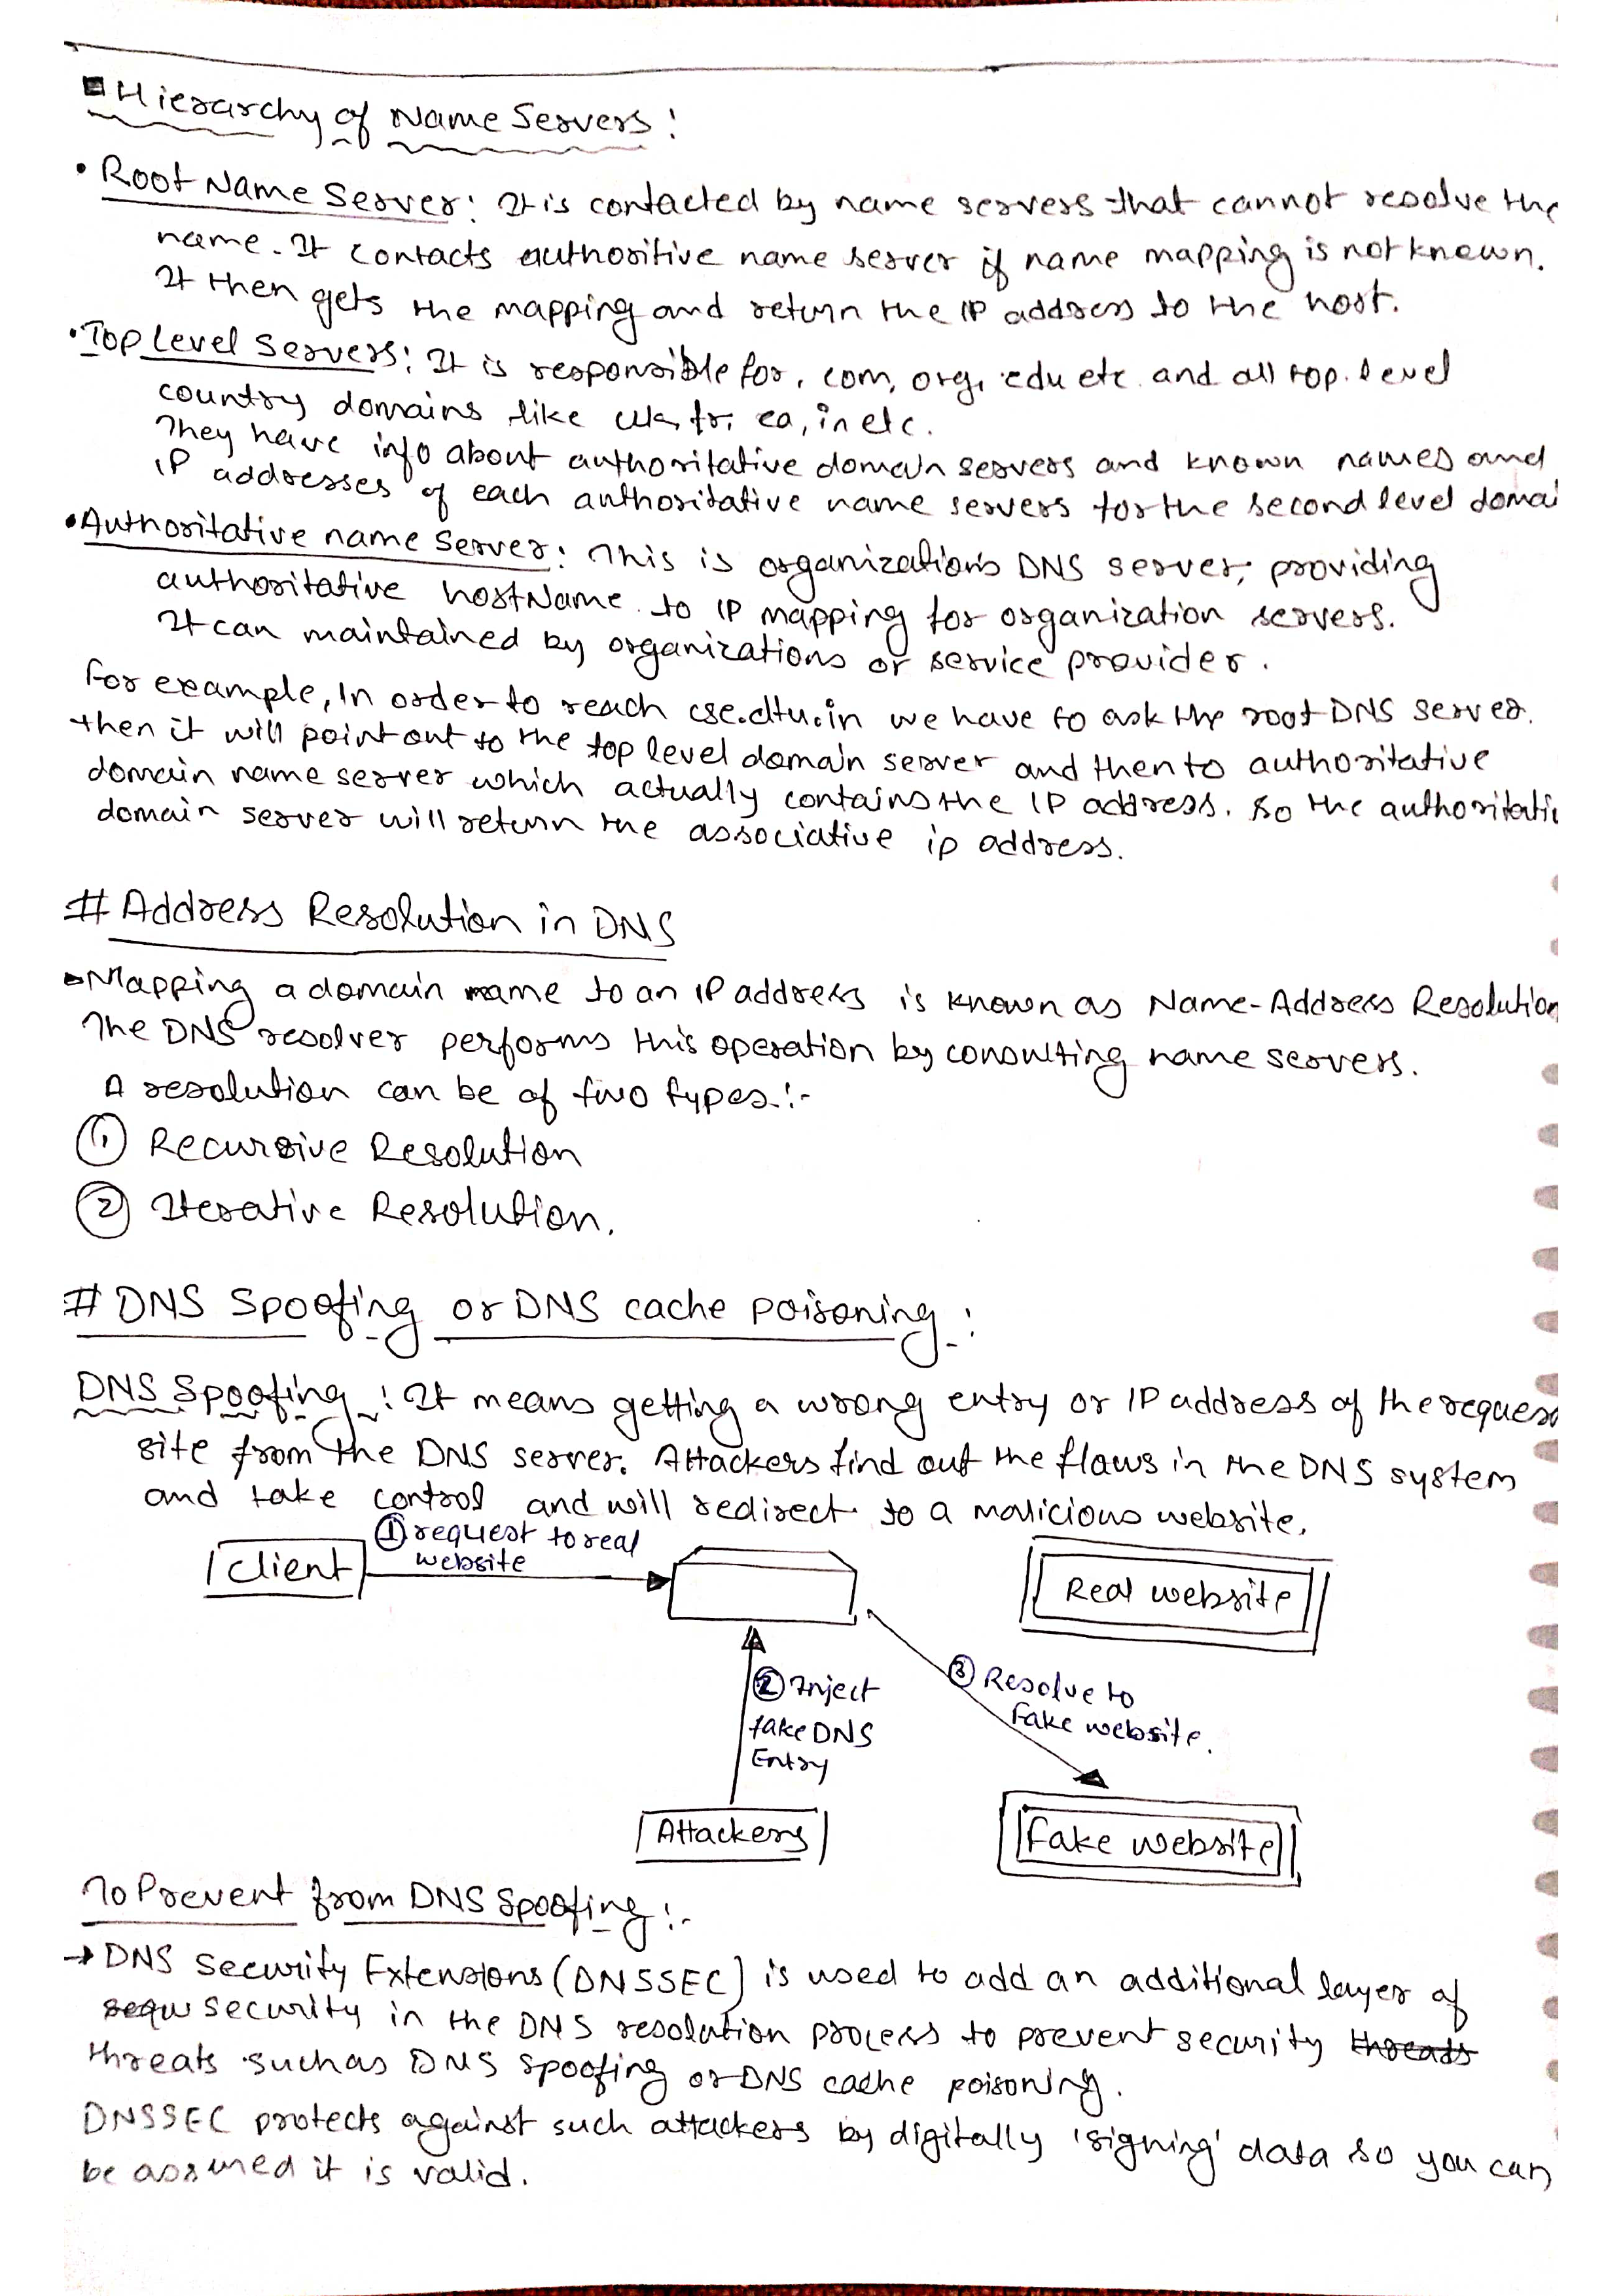 Hierarchy of Name Servers:
• Root Name Server: It is contacted by name servers that cannot resolve the
name. It contacts authoritive name server if name mapping is not known.
It then gets the mapping and return the IP address to the host.
• Top Level Servers: It is responsible for, com, org, edu etc. and all top. level
country domains like uk, fr, ca, in etc.
They have info about authoritative domain servers and known names and
IP addresses of each authoritative name servers for the second level domai
• Authoritative name Server: This is organization's DNS server, providing
authoritative hostName to IP mapping for organization servers.
It can maintained by organizations or service provider.
For example, In order to reach cse.dtu.in we have to ask the root DNS server.
then it will point out to the top level domain server and then to authoritative
domain name server which actually contains the IP address. So the authoritativ
domain server will return the associative ip address.
# Address Resolution in DNS
Mapping a domain name to an IP address is known as Name-Address Resolution
The DNS resolver performs this operation by consulting name servers.
A resolution can be of two types:-
① Recursive Resolution
② Iterative Resolution.
# DNS Spoofing or DNS cache poisoning:
DNS Spoofing: It means getting a wrong entry or IP address of the reques
site from the DNS server. Attackers find out the flaws in the DNS system
and take control and will redirect to a malicious website.
① request to real
website
Client
Real website
② Inject
fake DNS
Entry
③ Resolve to
Fake website.
Attackers
Fake website
To Prevent from DNS Spoofing:-
→ DNS Security Extensions (DNSSEC) is used to add an additional layer of
security in the DNS resolution process to prevent security threads
threats such as DNS spoofing or DNS cache poisoning.
DNSSEC protects against such attackers by digitally 'signing' data so you can
be assured it is valid.